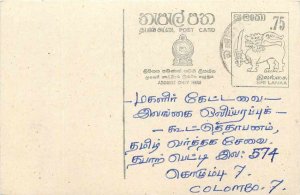 තැපැල් පත
தபாலட்டை POST CARD
ශ්‍රී ලංකා
.75
ADDRESS ONLY HERE
இலங்கை
SRI LANKA
மகளிர் கேட்டவை–
இலங்கை ஒலிபரப்புக்–
– கூட்டுத்தாபனம்,
தமிழ் வர்த்தக சேவை,
தபாற் பெட்டி இல: 574
கொழும்பு 7.
COLOMBO. 7